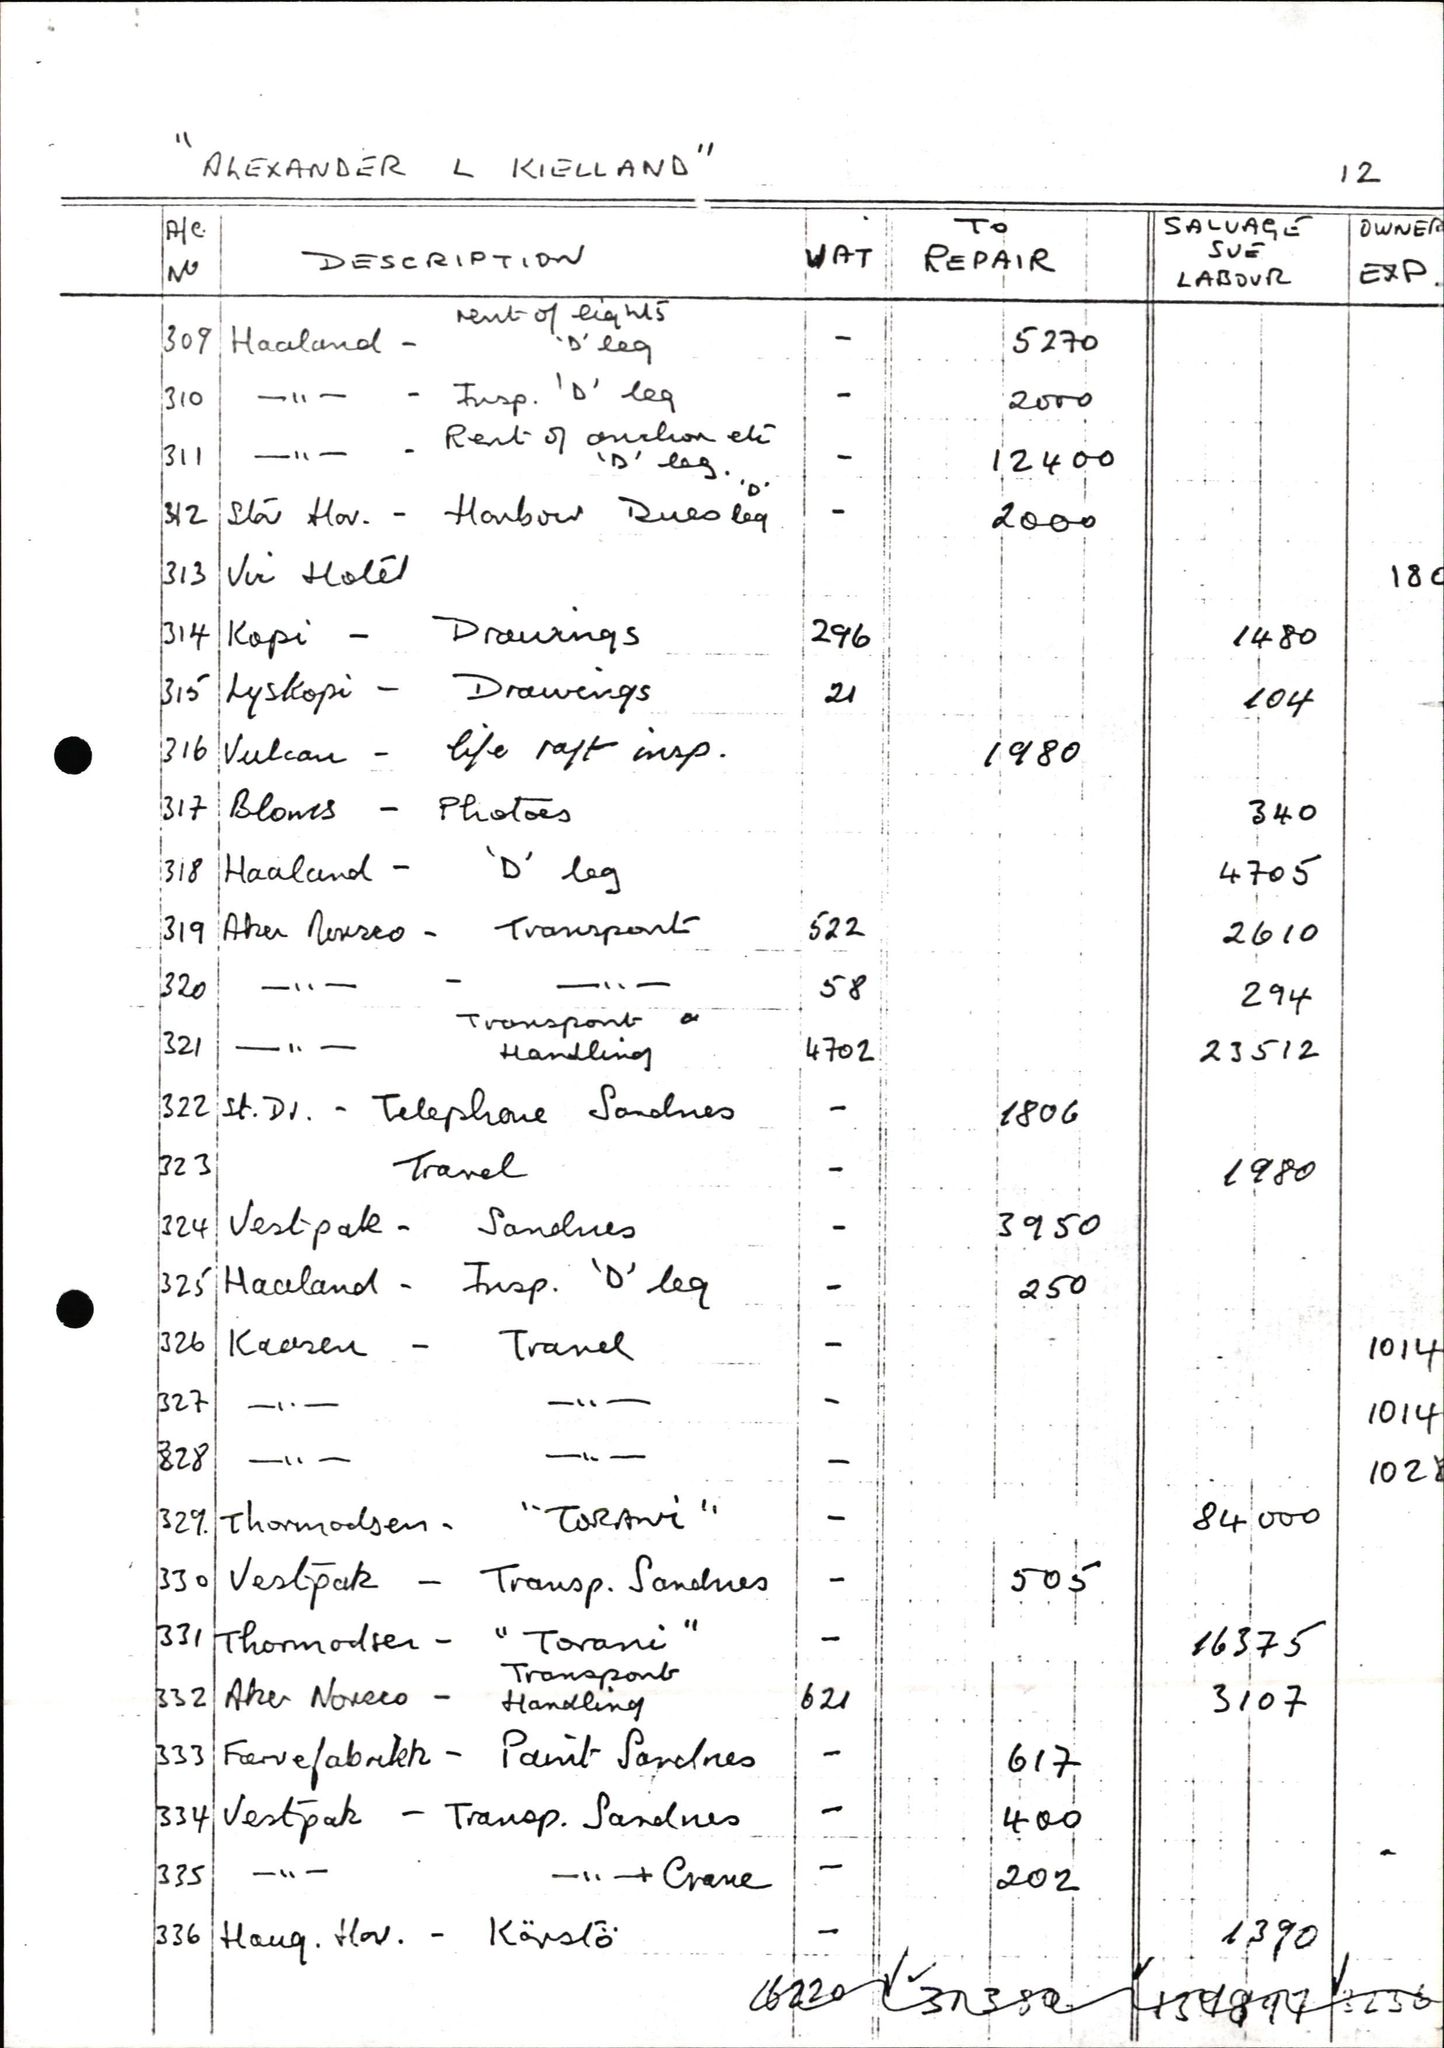 "ALEXANDER L KIELLAND" 12
A/C NO DESCRIPTION VAT TO REPAIR SALVAGE SUE LABOUR OWNER EXP.
309 Haaland - rent of lights 'D' leg - 5270
310 —"— - Insp. 'D' leg - 2000
311 —"— - Rent of anchor etc 'D' leg. - 12400
312 Stav Hav. - Harbour Dues 'D' leg - 2000
313 Vic Hotel 180
314 Kopi - Drawings 296 1480
315 Lyskopi - Drawings 21 104
316 Vulcan - life raft insp. 1980
317 Bloms - Photoes 340
318 Haaland - 'D' leg 4705
319 Aker Norsco - Transport 522 2610
320 —"— - —"— 58 294
321 —"— Transport & Handling 4702 23512
322 St. Dr. - Telephone Sandnes - 1806
323 Travel - 1980
324 Vestpak - Sandnes - 3950
325 Haaland - Insp. 'D' leg - 250
326 Kaasen - Travel - 1014
327 —"— —"— - 1014
328 —"— —"— - 1028
329. Thormodsen - "TORANI" - 84000
330 Vestpak - Transp. Sandnes - 505
331 Thormodsen - "Torani" - 16375
332 Aker Norsco - Transport Handling 621 3107
333 Farvefabrikk - Paint Sandnes - 617
334 Vestpak - Transp. Sandnes - 400
335 —"— —"— + Crane - 202
336 Haug. Hav. - Kårstö - 1390
6220 31380 139897 3236